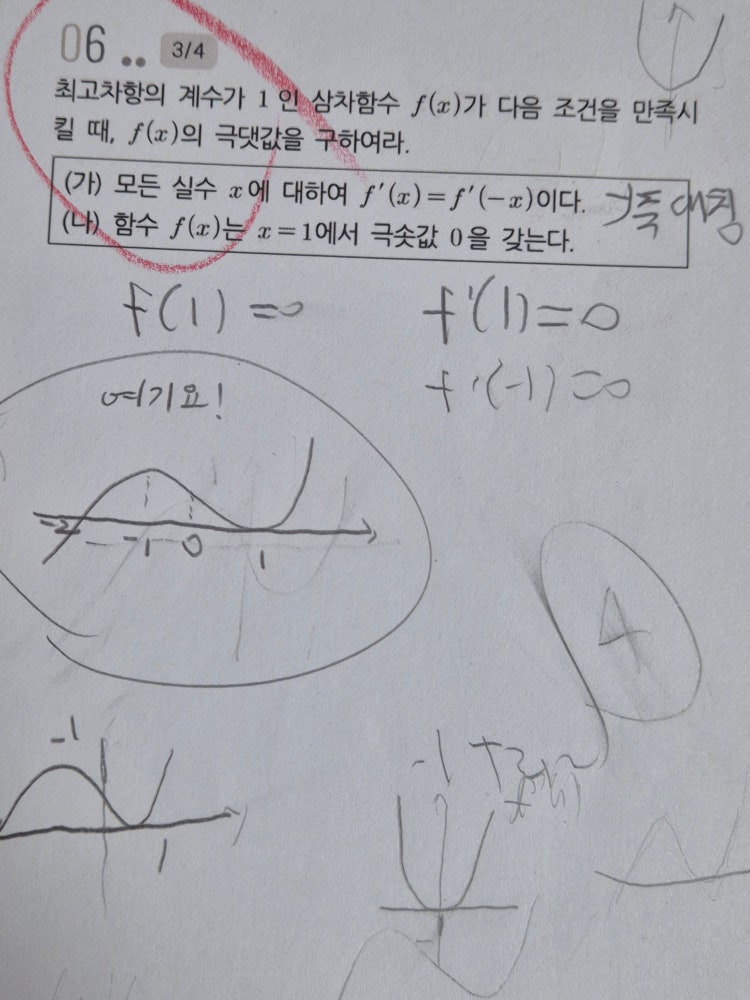 06
3/4
최고차항의 계수가 1인 삼차함수 f(x)가 다음 조건을 만족시
킬 때, f(x)의 극댓값을 구하여라.
(가) 모든 실수 x에 대하여 f'(x)=f'(-x)이다. y축 대칭
(나) 함수 f(x)는 x=1에서 극솟값 0을 갖는다.
f(1)=0 f'(1)=0
f'(-1)=0
여기요!
-2 -1 0 1
4
-1
-1
1
-1